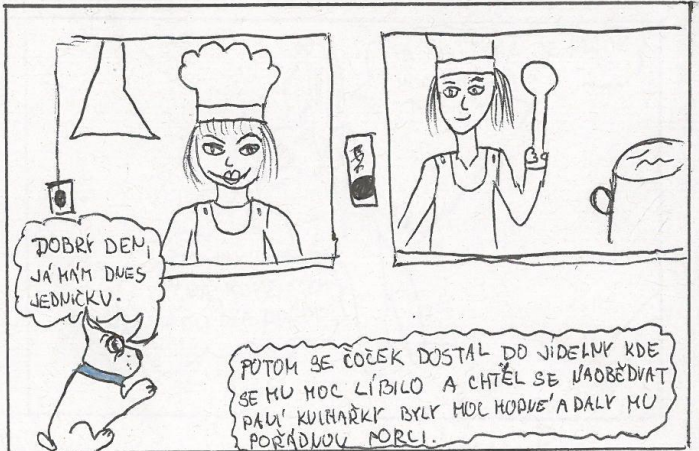 DOBRÝ DEN,
JÁ MÁM DNES
JEDNIČKU.
POTOM SE ČOČEK DOSTAL DO JÍDELNY KDE
SE MU MOC LÍBILO A CHTĚL SE NAOBĚDVAT
PANÍ KUCHAŘKY BYLY MOC HODNÉ A DALY MU
POŘÁDNOU PORCI.